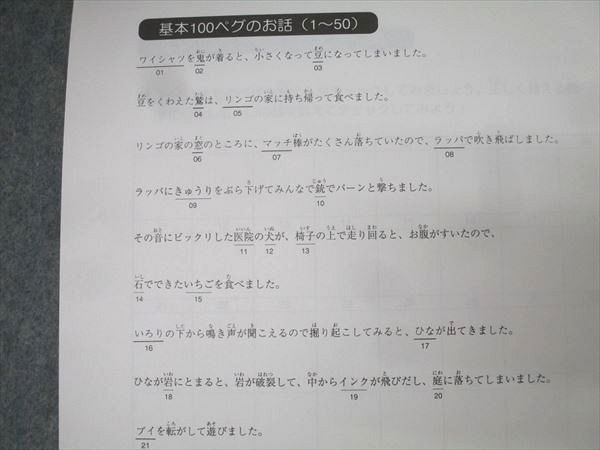 基本100ペグのお話（1〜50）
ワイシャツを鬼が着ると、小さくなって豆になってしまいました。
01 02 03
豆をくわえた鷲は、リンゴの家に持ち帰って食べました。
04 05
リンゴの家の窓のところに、マッチ棒がたくさん落ちていたので、ラッパで吹き飛ばしました。
06 07 08
ラッパにきゅうりをぶら下げてみんなで銃でバーンと撃ちました。
09 10
その音にビックリした医院の犬が、椅子の上で走り回ると、お腹がすいたので、
11 12 13
石でできたいちごを食べました。
14 15
いろりの下から鳴き声が聞こえるので掘り起こしてみると、ひなが出てきました。
16 17
ひなが岩にとまると、岩が破裂して、中からインクが飛びだし、庭に落ちてしまいました。
18 19 20
ブイを転がして遊びました。
21